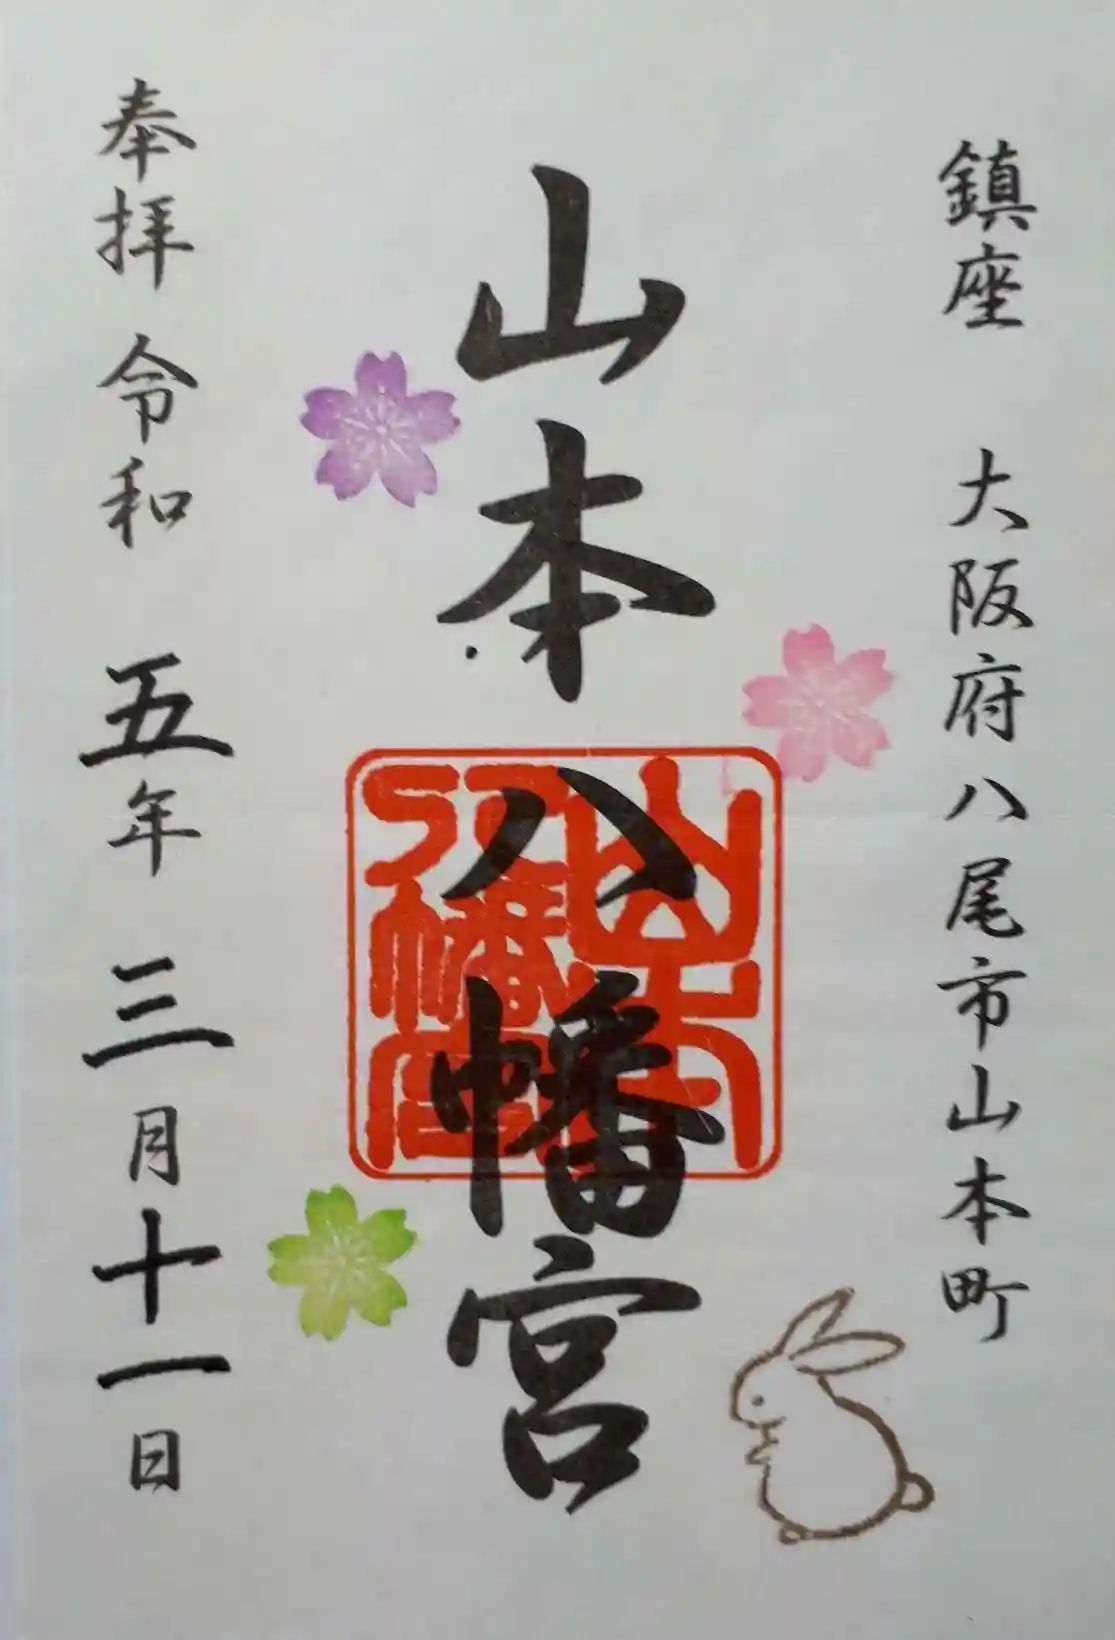 鎮座 大阪府八尾市山本町
山本八幡宮
山本
八幡宮
奉拝 令和 五年 三月十一日